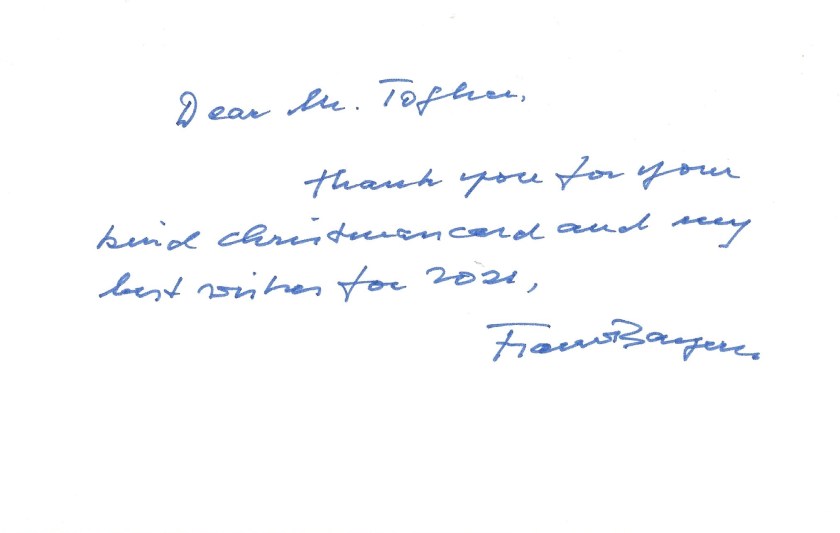 Dear Mr.
thank you for your
kind christmascard and my
best wishes for 2021,
Franz Bayern